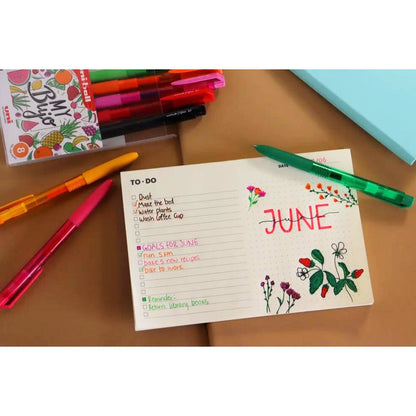 My
Bujo
uni-ball
uni
8
TO-DO
DATE
Dust
Make the bed
Water plants
Wash coffee cup
GOALS FOR JUNE
run 5 km
bake 3 new recipes
bike to work
Reminder:
Return library books
JUNE